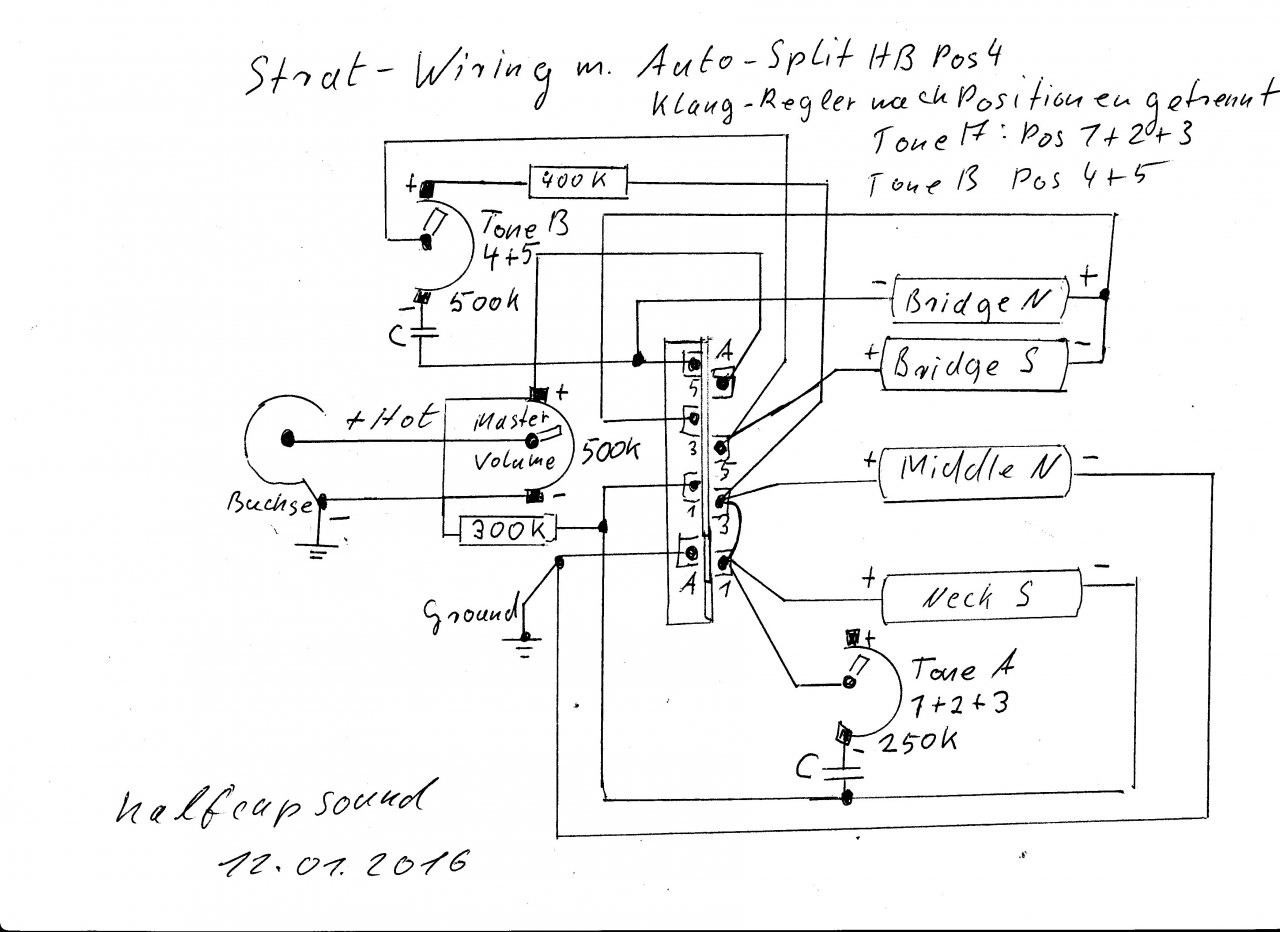 Strat-Wiring m. Auto-Split HB Pos 4
Klang-Regler nach Positionen getrennt
Tone A: Pos 1+2+3
Tone B Pos 4+5
+
400K
Tone B
4+5
-
500K
C
- Bridge N +
+ Bridge S -
A
5
3
5
1
3
A
1
+ Hot
+
Master
Volume
500K
Buchse
-
-
300K
Ground
+ Middle N -
+ Neck S -
+
Tone A
1+2+3
250K
-
C
halfcapsound
12.01.2016